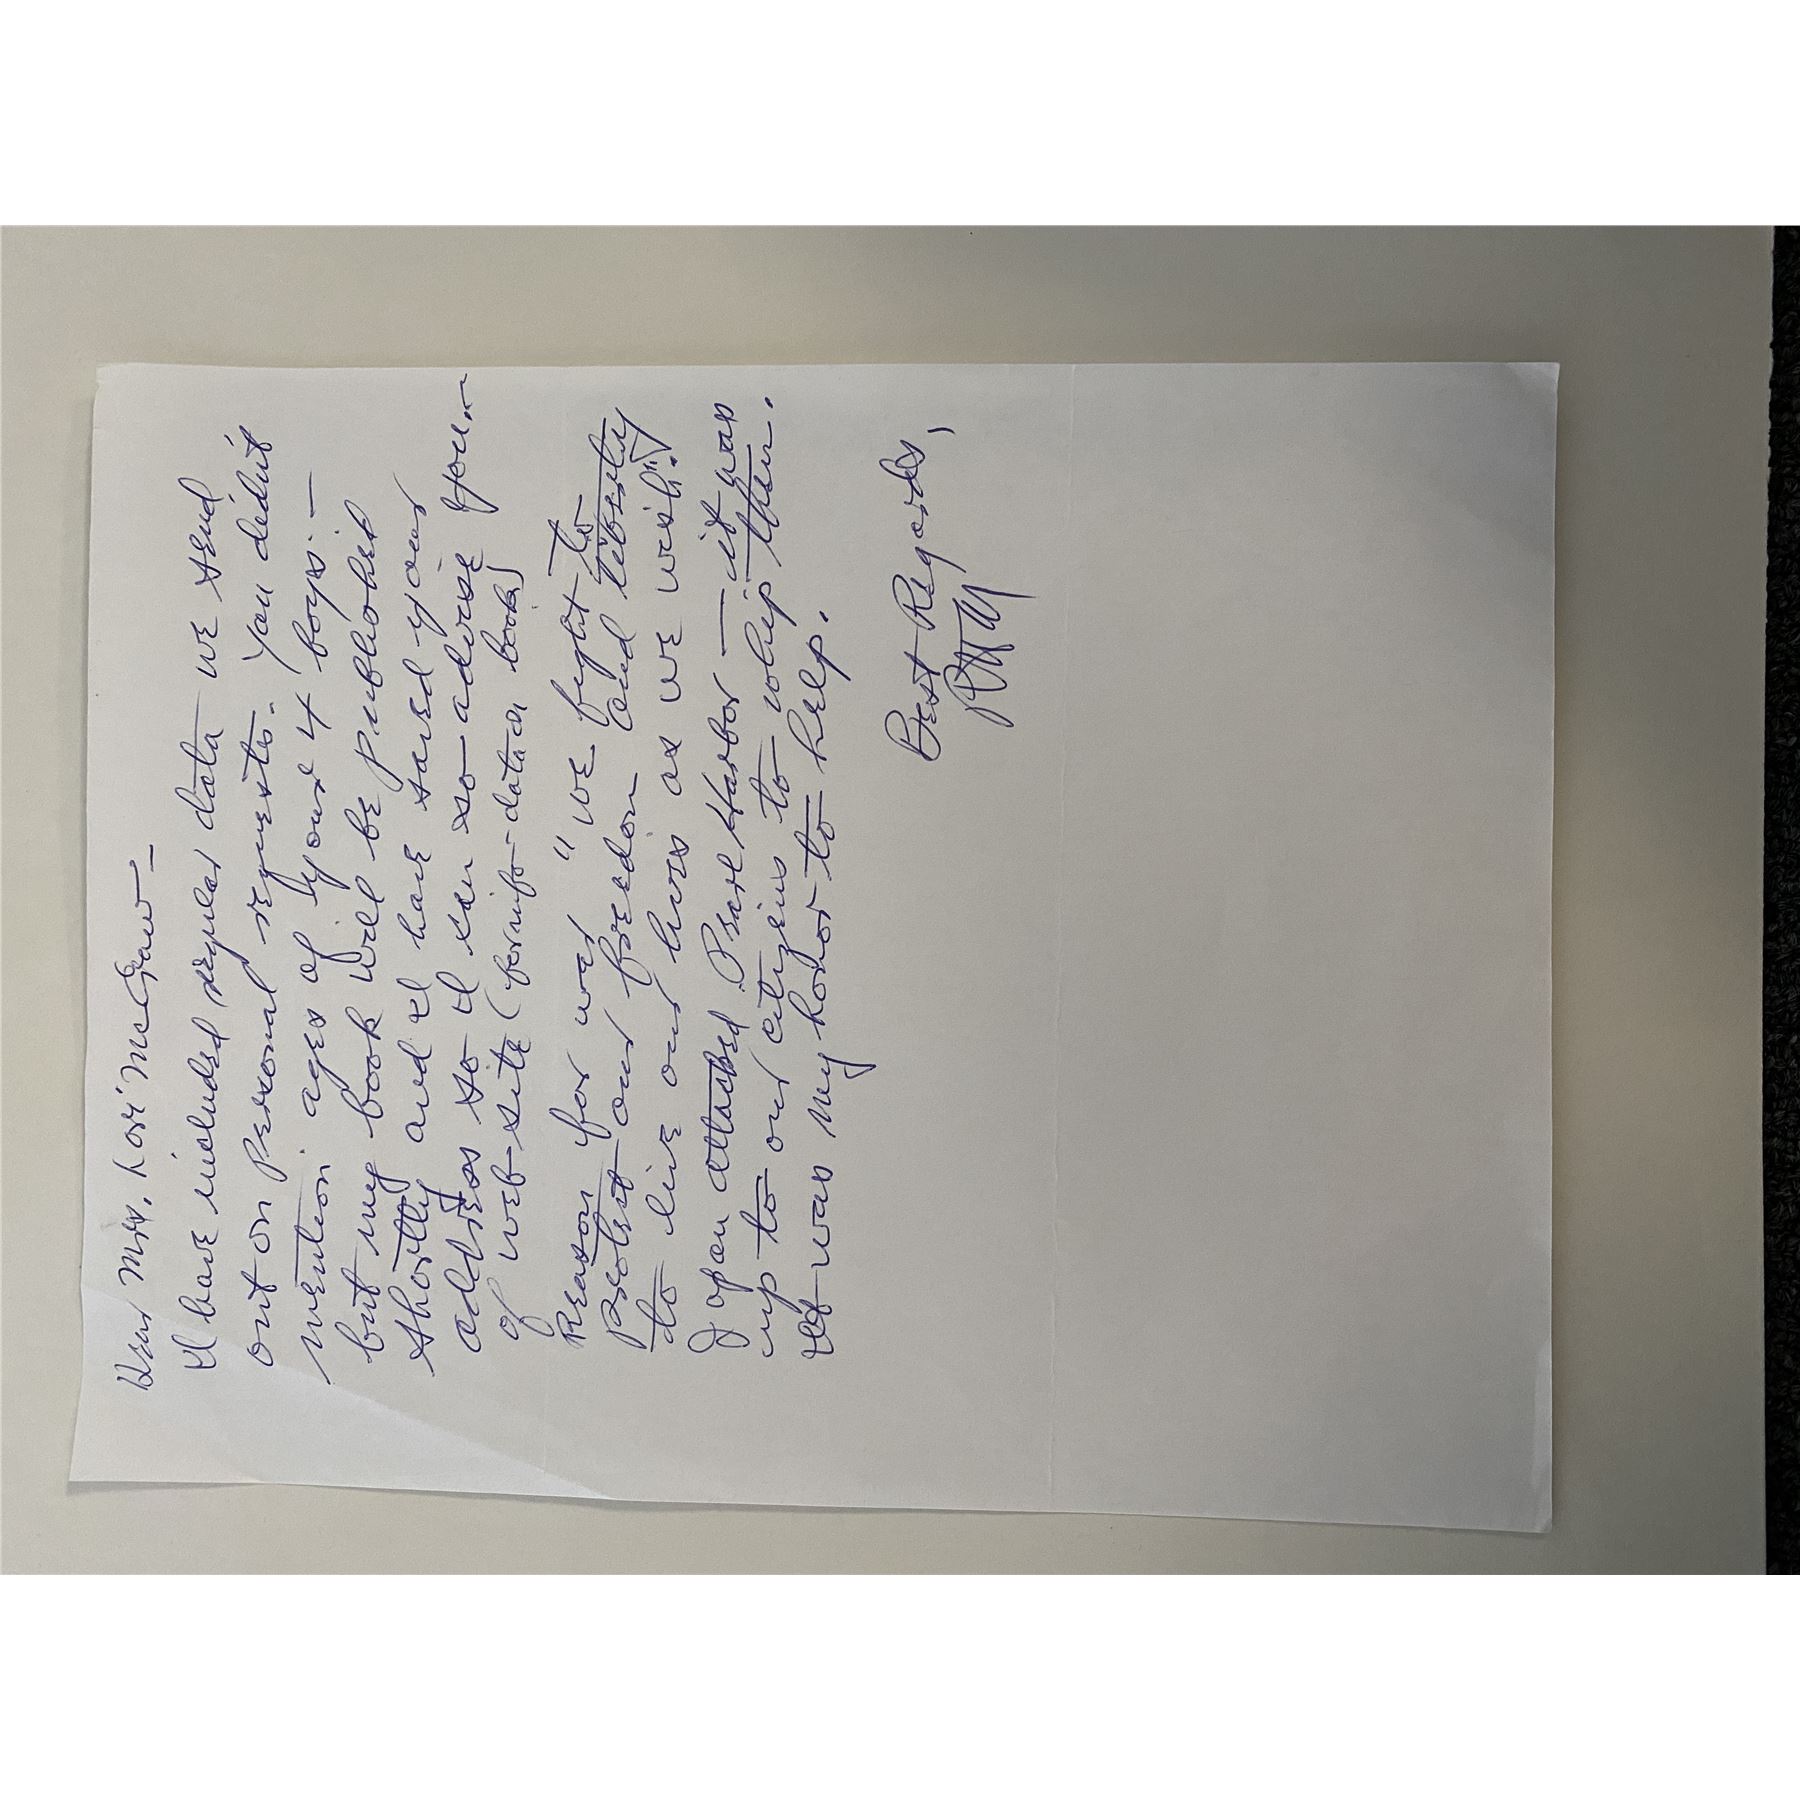 Dear Mrs. Lori McGraw —
I have included regular data we send
out on Personal requests. You didn't
mention ages of your 4 boys. —
but my book will be published
shortly and I have saved your
address so I can so advise you
of web-site (for info - data on book)
Reason for war "we fight to
Protect our freedom and liberty
to live our lives as we wish."
Japan attacked Pearl Harbor — it was
up to our citizens to whip them.
It was my honor to help.
Best Regards,